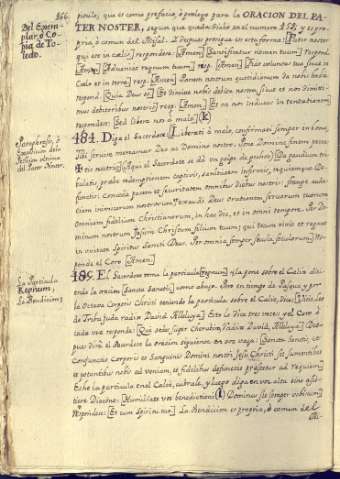 866.
Del Exem-
plar, ò Co-
pia de To-
ledo.
pitulo, que es como prefacio, ò prologo para la ORACION DEL PA-
TER NOSTER, segun que queda dicho en el numero 152. y es pro-
pria, ò comun del Missal. I Despues prosigue en esta forma: [Pater noster
qui es in cælis] responden. [Amen] Sanctificetur nomen tuum] respond.
[Amen] [Adveniat regnum tuum] resp. [Amen] [Fiat voluntas tua sicut in
Cælo et in terra] resp. [Amen] Panem nostrum quotidianum da nobis hodie
respond. [Quia Deus es] [Et dimitte nobis debita nostra, sicut et nos dimitti-
mus debitoribus nostris] resp. [Amen] [Et ne nos inducas in tentationem]
responden: [Sed libera nos à malo] [K]
184. Diga el Sacerdote [Liberati à malo, confirmati semper in bono,
Tibi servire mereamur Deo ac Domino nostro. Pone Domine finem pecca-
tis nostris] (Aqui el Sacerdote se dà un golpe de pechos) [Da gaudium tri-
bulatis, præbe redemptionem captivis, sanitatem infirmis, requiemque De-
functis. Concede pacem et securitatem omnibus diebus nostris: frange auda-
ciam inimicorum nostrorum. Exaudi Deus Orationem servorum tuorum
Omnium fidelium Christianorum, in hac die, et in omni tempore. Per Do-
minum nostrum Jesum Christum filium tuum, qui tecum vivit et regnat
in unitate Spiritus Sancti Deus. Per omnia semper sæcula sæculorum] Res-
ponde el Coro [Amen]
La Particula
Regnum,
La Bendicion,
185. El Sacerdote toma la particula [regnum] y la pone sobre el Caliz dicien-
do la oracion [Sancta Sanctis] como abajo. Pero en tiempo de Pasqua y por
la Octava Corporis Christi teniendo la particula sobre el Caliz, dice: [Vicit Leo
de Tribu Juda radix David Alleluya] Esto lo dice tres veces y el Coro à
cada una responde: [Qui sedes super Cherubim, Radix David, Alleluya] Des-
pues dirà el Sacerdote la oracion siguiente en voz baja: [Sancta Sanctis, et
Conjunctio Corporis et Sanguinis Domini nostri Jesu Christi sit sumentibus
et potantibus nobis ad veniam, et fidelibus defunctis præstetur ad requiem]
Eche la particula en el Caliz, cubrale, y luego diga en voz alta
Humiliate vos benedictioni [l] Dominus sit semper vobiscum]
Responden: [Et cum Spiritu tuo] La Bendicion es propria, ò comun del